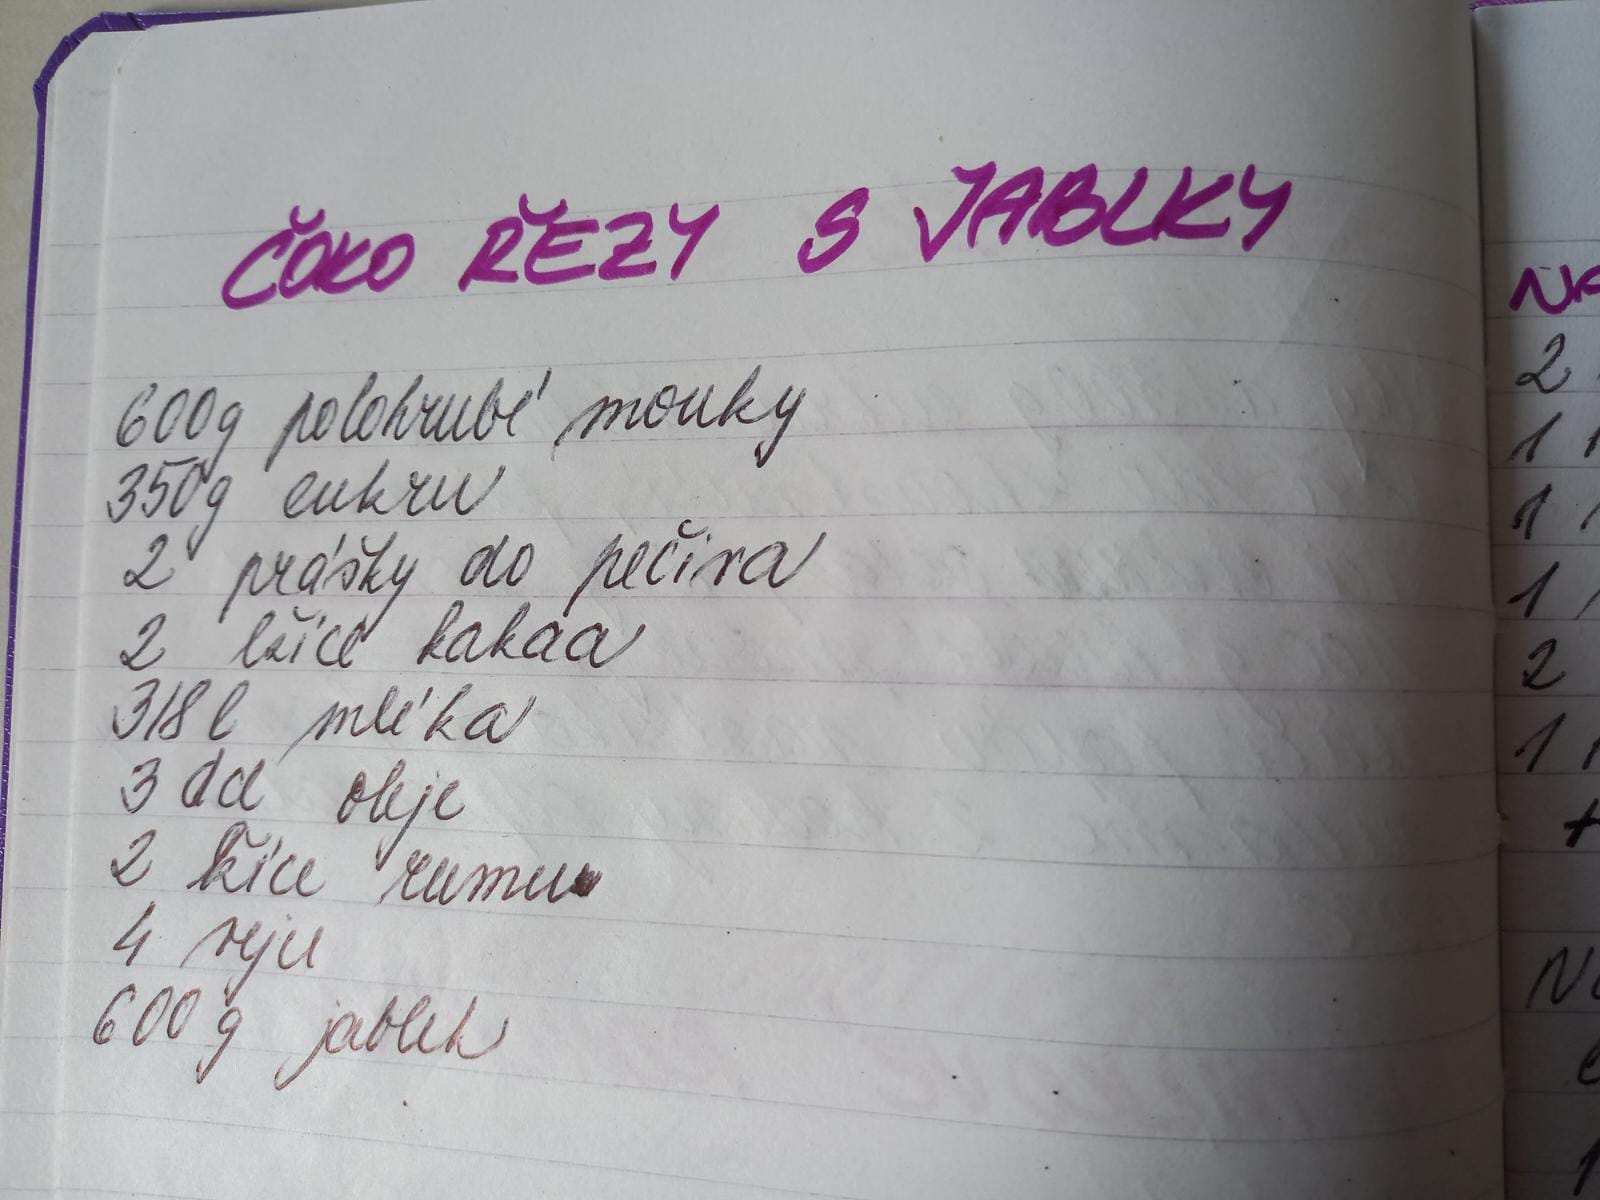 ČOKO ŘEZY S JABLKY
600g polohrubé mouky
350g cukru
2 prášky do pečiva
2 lžíce kakaa
3/8 l mléka
3 dcl oleje
2 lžíce rumu
4 vejce
600g jablek
NA
2
1
1
1
2
1
+